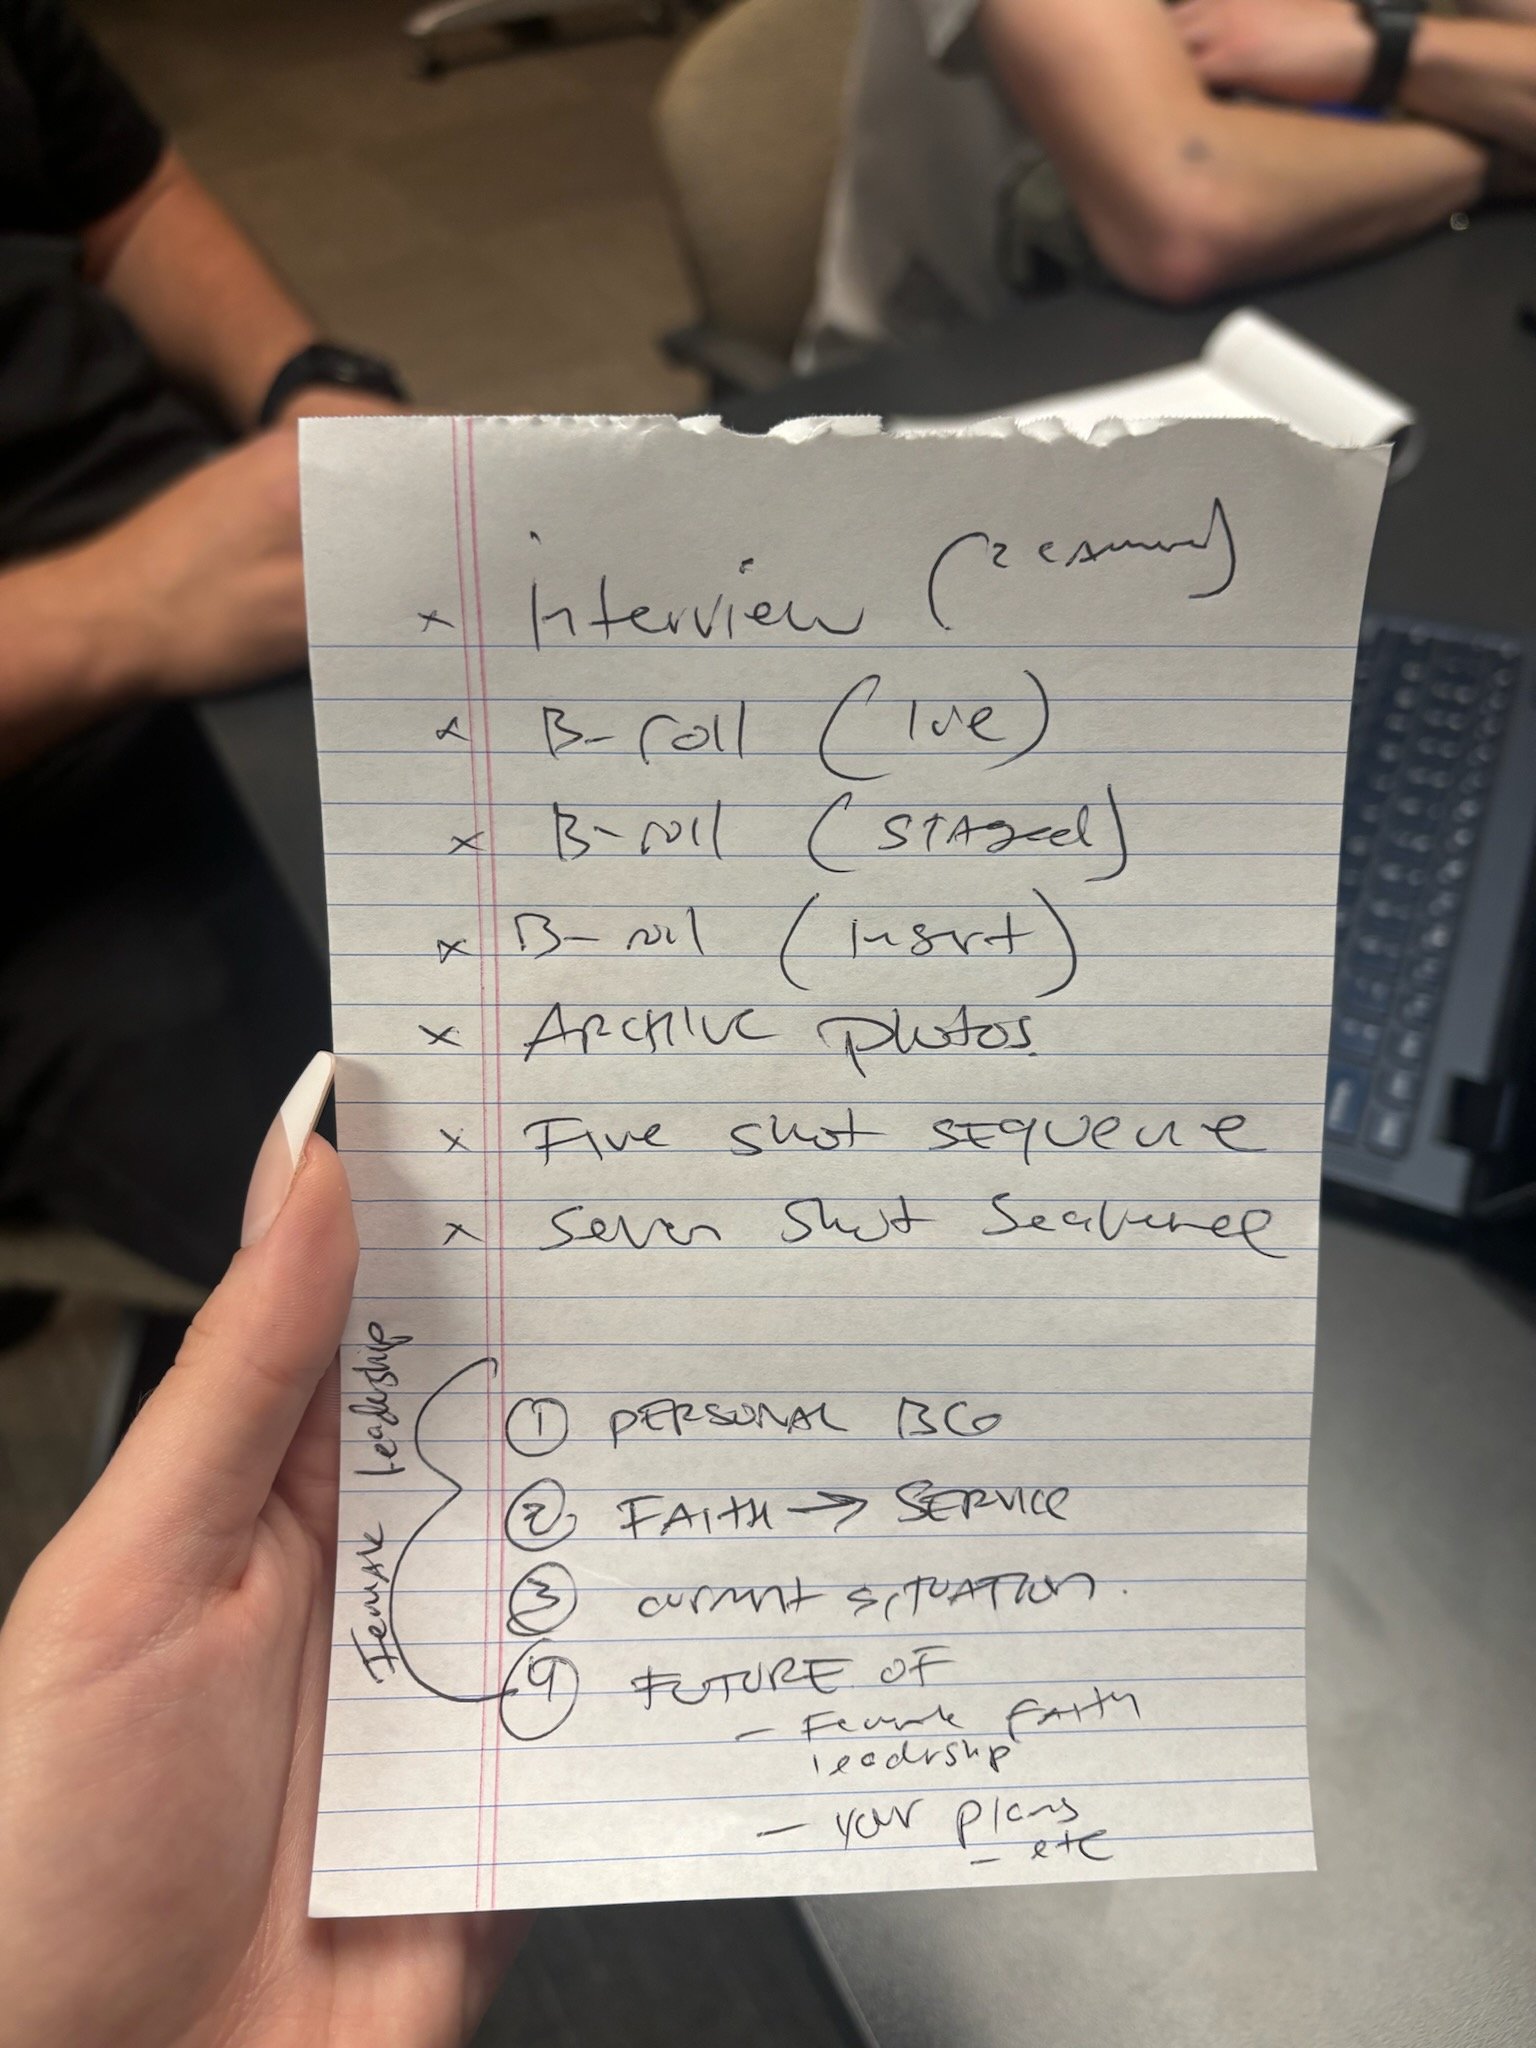 x Interview (2 camera)
x B-roll (live)
x B-roll (STAged)
x B-roll (Insert)
x ARCHIVE photos.
x FIVE shot SEquence
x Seven Shot Sequence
Female Leadership
① PERSONAL BG
② FAITH → SERVICE
③ current SITUATION.
④ FUTURE OF
– Female FAITH
leadership
– your plans
– etc